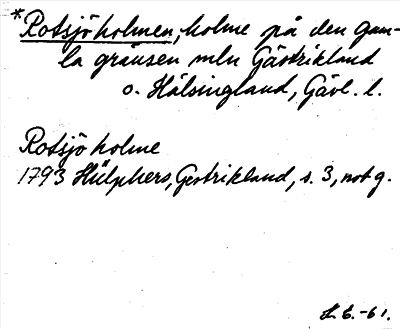 *Rotsjöholmen, holme på den gam-
la gränsen mln Gästrikland
o. Hälsingland, Gävl. l.
Rotsjö holme
1793 Hülphers, Gestrikland, s. 3, not g.
L. E. -61.